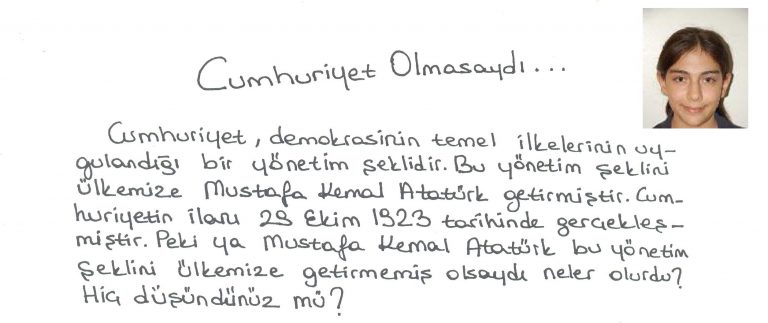 Cumhuriyet Olmasaydı...
Cumhuriyet, demokrasinin temel ilkelerinin uy-
gulandığı bir yönetim şeklidir. Bu yönetim şeklini
ülkemize Mustafa Kemal Atatürk getirmiştir. Cum-
huriyetin ilanı 29 Ekim 1923 tarihinde gerçekleş-
miştir. Peki ya Mustafa Kemal Atatürk bu yönetim
şeklini ülkemize getirmemiş olsaydı neler olurdu?
Hiç düşündünüz mü?